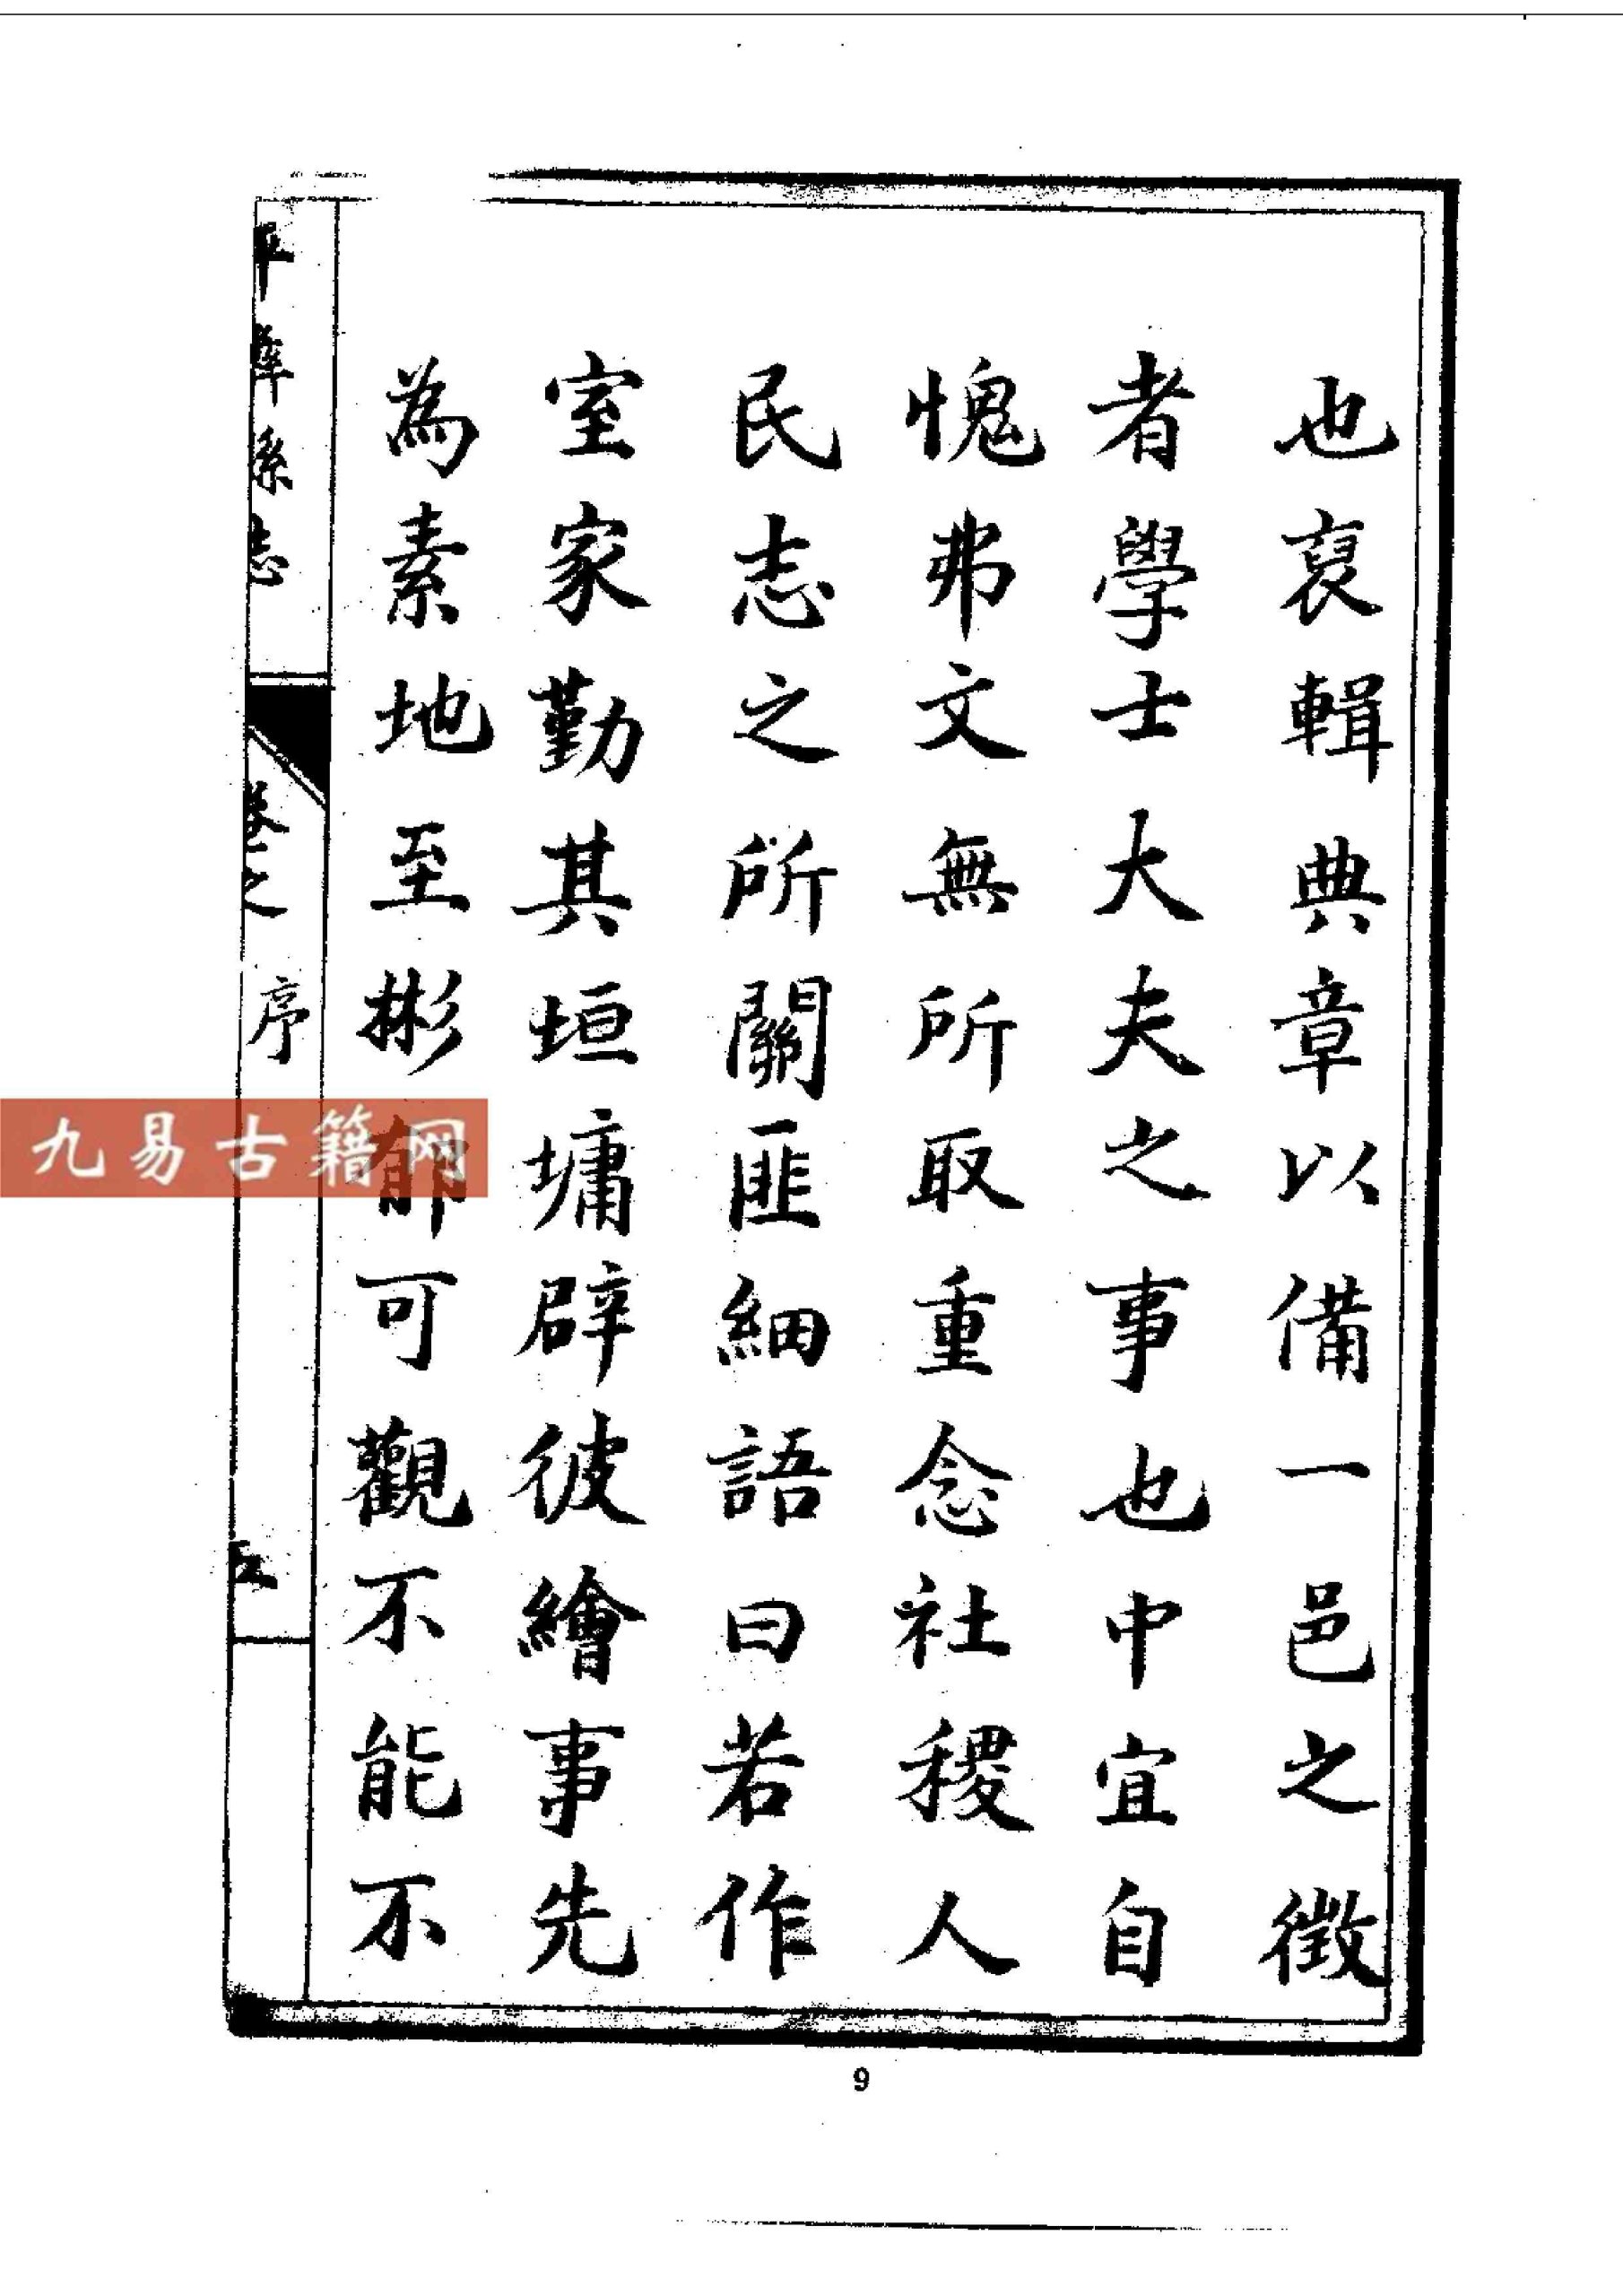 也裒輯典章以備一邑之徵
者學士大夫之事也中宜自
愧弗文無所取重念社稷人
民志之所關匪細語曰若作
室家勤其垣墉辟彼繪事先
為素地至彬郁可觀不能不
平彝縣志
卷之
序
五
九易古籍网
9